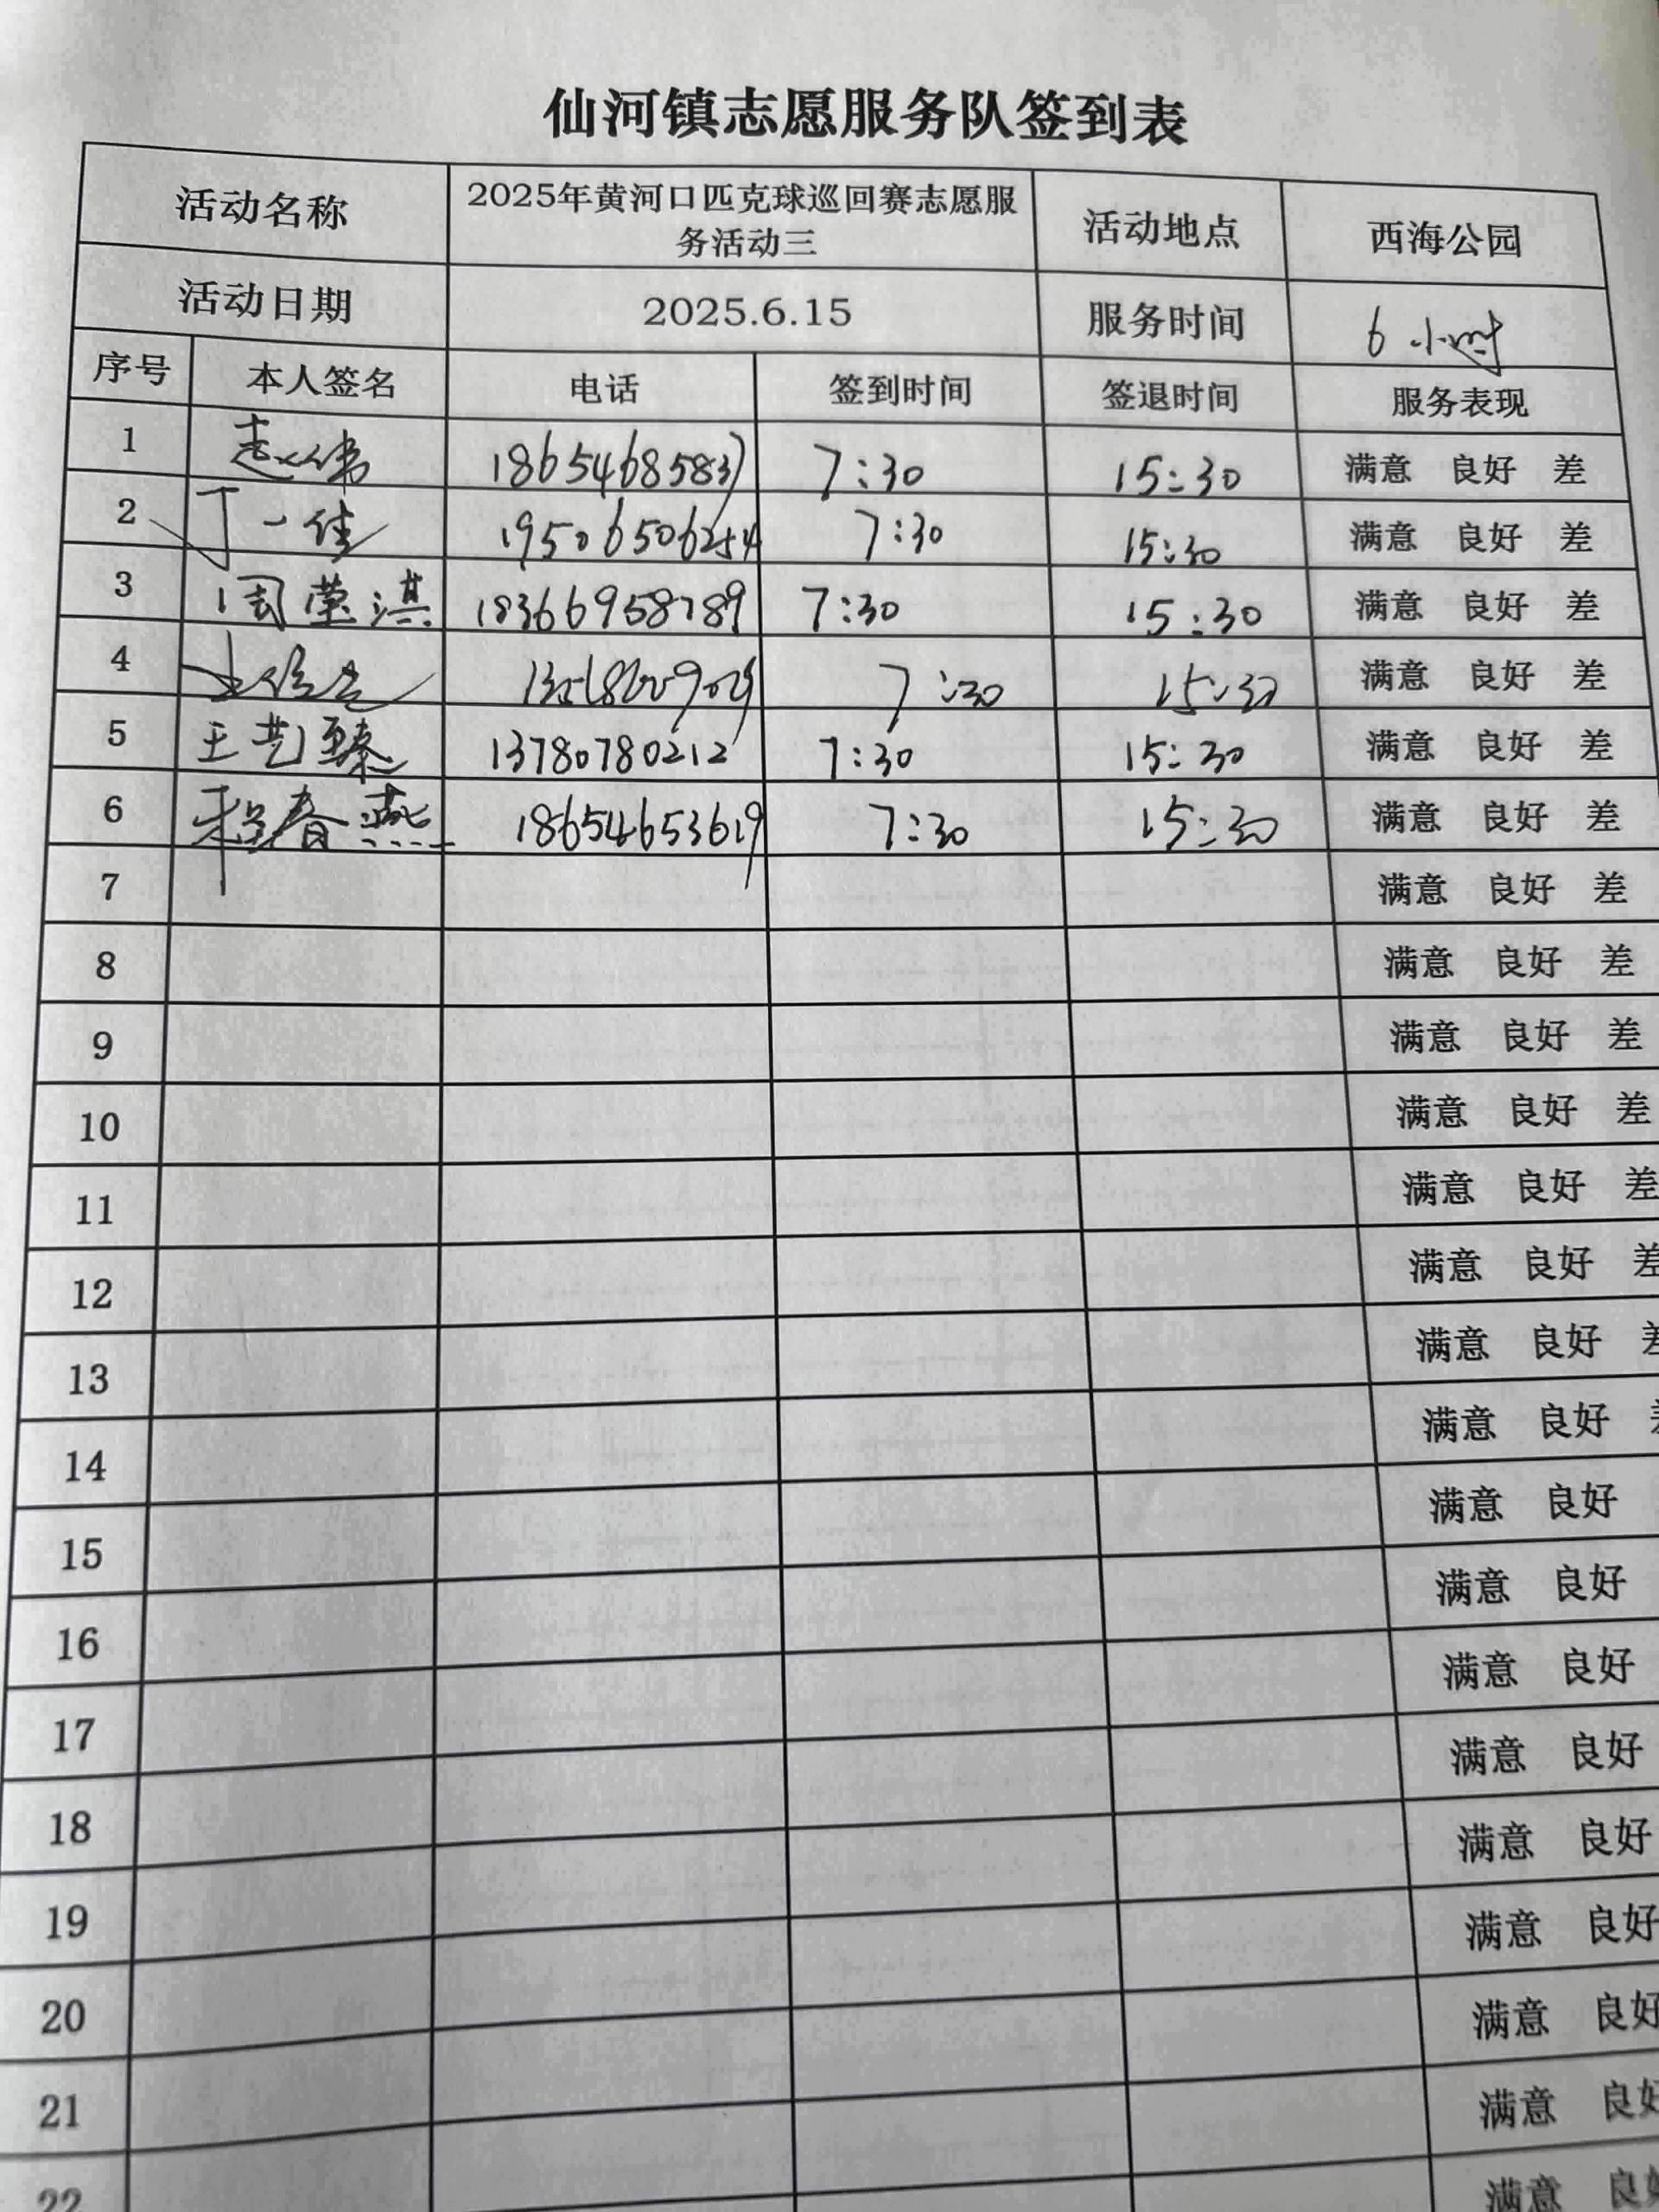 仙河镇志愿服务队签到表
活动名称 2025年黄河口匹克球巡回赛志愿服务活动三 活动地点 西海公园
活动日期 2025.6.15 服务时间 6小时
序号 本人签名 电话 签到时间 签退时间 服务表现
1 赵伟 18654685837 7:30 15:30 满意 良好 差
2 丁一佳 19506506254 7:30 15:30 满意 良好 差
3 周莹淇 18366958789 7:30 15:30 满意 良好 差
4 7:30 15:30 满意 良好 差
5 王艺臻 13780780212 7:30 15:30 满意 良好 差
6 程春燕 18654653619 7:30 15:30 满意 良好 差
7 满意 良好 差
8 满意 良好 差
9 满意 良好 差
10 满意 良好 差
11 满意 良好 差
12 满意 良好 差
13 满意 良好 差
14 满意 良好
15 满意 良好
16 满意 良好
17 满意 良好
18 满意 良好
19 满意 良好
20 满意 良好
21 满意 良好
22 满意 良好